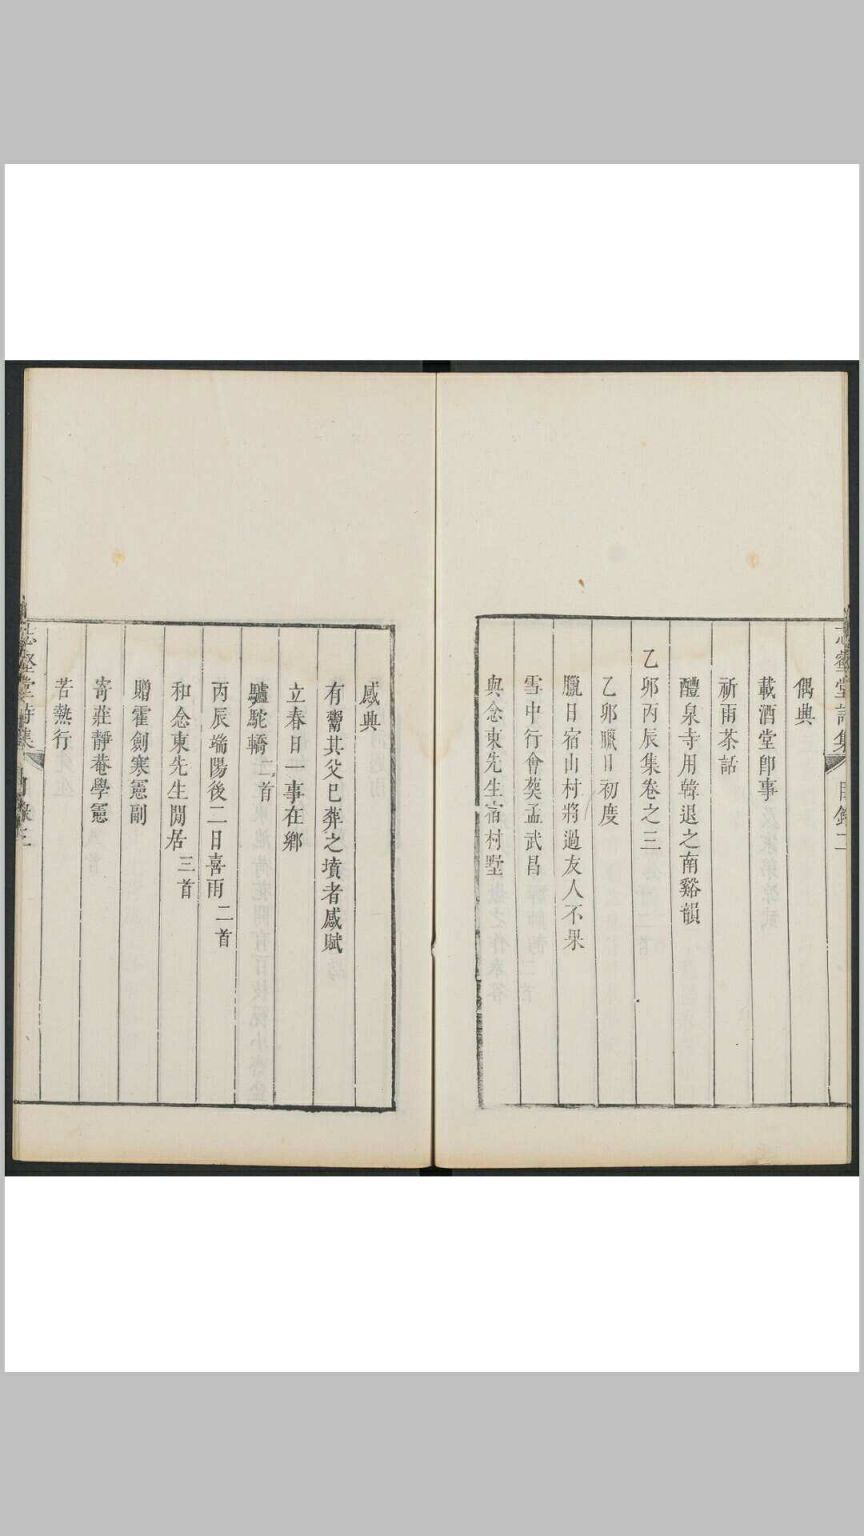 志壑堂詩集 目錄二
偶興
載酒堂即事
祈雨茶話
醴泉寺用韓退之南谿韻
乙卯丙辰集卷之三
乙卯臘日初度
臘日宿山村將過友人不果
雪中行會葬孟武昌
與念東先生宿村墅
感興
有鬻其父已葬之墳者感賦
立春日一事在鄉
驢駝轎 二首
丙辰端陽後二日喜雨 二首
和念東先生閒居 三首
贈霍劍寒憲副
寄莊靜菴學憲
苦熱行
志壑堂詩集 目錄三